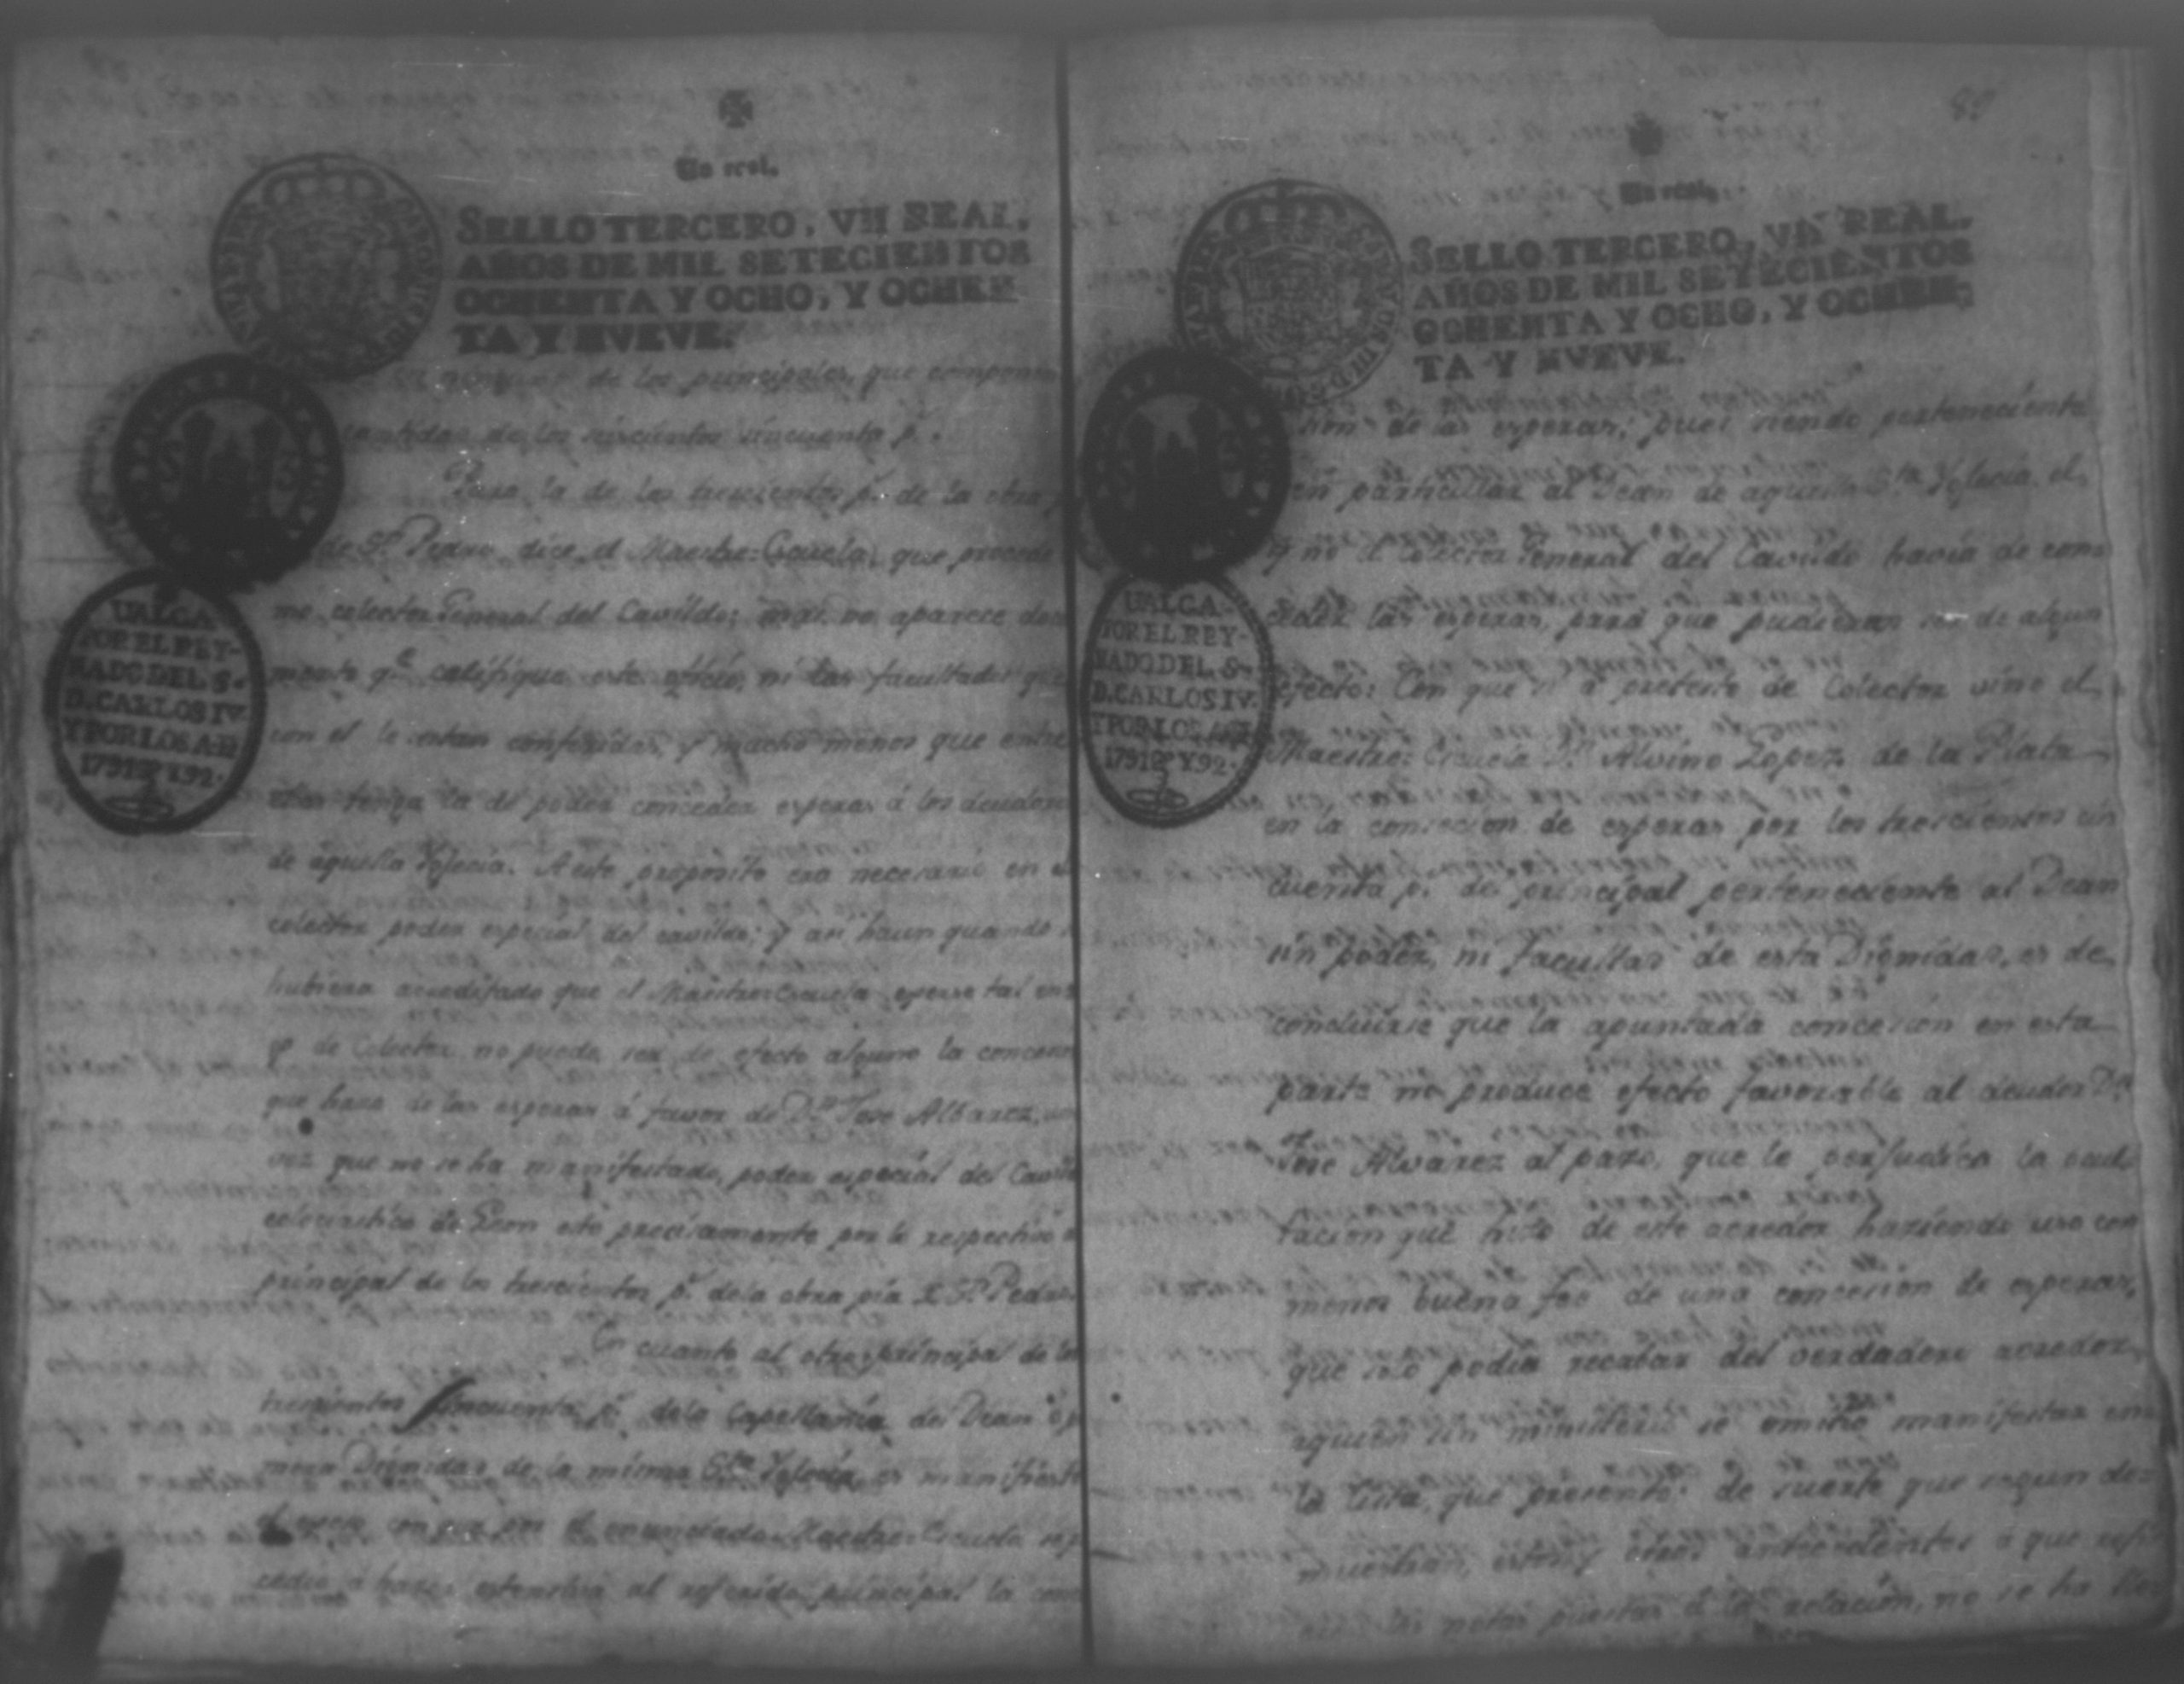 Un real.
SELLO TERCERO, VN REAL,
AÑOS DE MIL SETECIENTOS
OCHENTA Y OCHO, Y OCHEN
TA Y NVEVE.
VALGA
POR EL REY-
NADO DEL S.
D. CARLOS IV.
Y POR LOS A. D
1791 Y 92.
de los principales, que componen
cantidad de los seiscientos cincuenta p.s
Para la de los trescientos p.s de la obra p
de S.n Pedro, dice el Maestre-Escuela, que procede
mo colector General del Cavildo; mas no aparece docu
mento q.e califique este oficio, ni las facultades que
con el le estan conferidas, y mucho menos que entre
ellas tenga la de poder conceder esperas á los deudores
de aquella Yglecia. A este proposito era necesario en el
colector poder especial del cavildo; y asi haun quando
hubiera acreditado que el Maestre-Escuela exerse tal en
go de Colector no puede ser de efecto alguno la concesion
que hase de las esperas á favor de D.n Jose Albarez, una
vez que no se ha manifestado poder especial del Cavildo
eclesiastico de Leon esto precisamente por lo respectivo al
principal de los trescientos p.s de la obra pia de S.n Pedro
En cuanto al otro principal de los
trescientos cincuenta p.s de la Capellanía del Dean
mera Dignidad de la misma S.ta Yglecia, es manifiesto
el enunciado Maestre-Escuela
cedio á hacer extensiva al referido principal la conse
82
Un real.
SELLO TERCERO, VN REAL,
AÑOS DE MIL SETECIENTOS
OCHENTA Y OCHO, Y OCHEN-
TA Y NVEVE.
VALGA
POR EL REY-
NADO DEL S.
D. CARLOS IV.
Y POR LOS A. D
1791 Y 92.
sion de las esperas; pues siendo perteneciente
en particular al Dean de aquella S.ta Yglecia, el
y no el Colector General del Cavildo havia de conse
ceder las esperas, para que pudieran ser de algun
efecto: Con que si á pretexto de Colector vino el
Maestre-Escuela D.n Alvino Lopez de la Plata
en la concecion de esperas por los trescientos cin
cuenta p.s del principal perteneciente al Dean
sin poder, ni facultad de esta Dignidad, es de
concluirse que la apuntada concesion en esta
parte no produce efecto favorable al deudor D.n
Jose Alvarez al paso, que le perjudica la ocul
tacion que hizo de este acredor haziendo uso con
menos buena fee de una concesion de esperas,
que solo podia recabar del verdadero acredor,
aquien sin misterio se omitió manifestar en
la lista, que presentó: de suerte que segun de
muestran, estos y otros antecedentes á que
las notas puestas á la relacion, no se ha